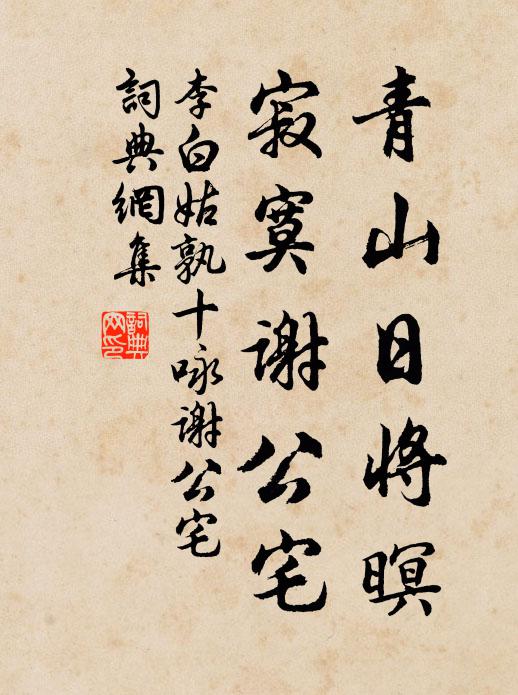 青山日將暝
寂寞謝公宅
李白姑孰十咏謝公宅
詞典網集
詞典網印